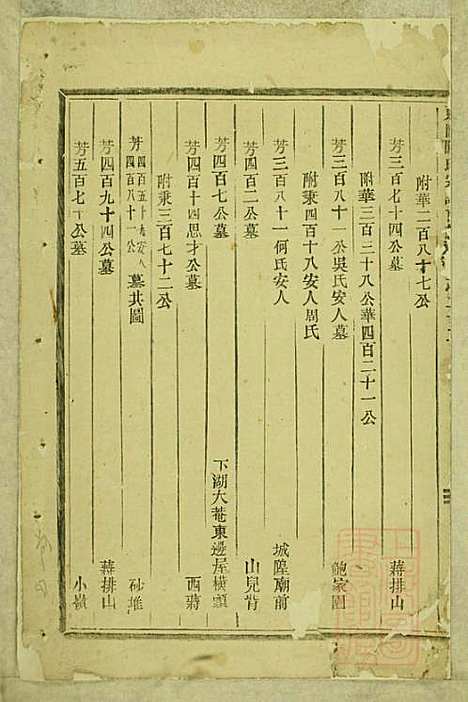 附華二百八十七公
芳三百七十四公墓 蔣排山
附華三百三十八公華四百二十一公
芳三百八十一公吳氏安人墓 鮑家園
附秉四百十八安人周氏
芳三百八十一何氏安人 城隍廟前
芳四百二公墓 山兒背
芳四百七公墓 下湖大菴東邊屋橫頭
芳四百十四思才公墓 西蔣
附秉三百七十二公
芳四百五十 安人
四百八十一公 墓共圖 砂堆
芳四百九十四公墓 蔣排山
芳五百七十公墓 小嶺